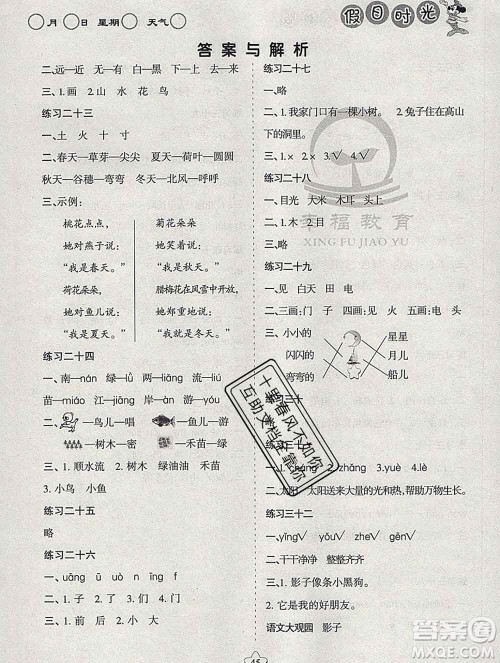 月 日 星期 天气
假日时光
答案与解析
二、远—近 无—有 白—黑 下—上 去—来
三、1. 画 2. 山 水 花 鸟
练习二十三
一、土 火 十 寸
二、春天—草芽—尖尖 夏天—荷叶—圆圆
秋天—谷穗—弯弯 冬天—北风—呼呼
三、示例：
桃花点点， 菊花朵朵，
她对燕子说： 她笑着说：
“我是春天。” “我是秋天。”
荷花朵朵， 腊梅花在风雪中开放，
她对鱼儿说： 她对
“我是夏天。” “我是冬天。”
练习二十四
一、南—nán 绿—lǜ 两—liǎng 游—yóu
苗—miáo 江—jiāng
二、 —鸟儿—唱 —鱼儿—游
—树木—密 —禾苗—绿
三、1. 顺水流 2. 树木 绿油油 禾苗
4. 小鸟 小鱼
练习二十五
略
练习二十六
一、uāng ū uò īng f
三、1. 画 2.
四、前 后 左 右
45
练习二十七
一、略
二、1. 我家门口有一棵小树。 2. 兔子住在高山
下的洞里。
三、1. × 2. × 3. √ 4. √
练习二十八
一、目光 大米 木耳 土上
二、1. 木 2. 目
三、略
幸福教育
XING FU JIAO YU
练习二十九
一、见 白天 田 电
二、三画：门 子 四画：见 火 五画：电 示
三、小小的 星星
闪闪的 月儿
弯弯的 船儿
练习三十
略
十里春风不如你
互助文档在靠你
一、1. 2. zhǎng 3. yuè 4. lè
二、太阳 太阳送来大量的光和热，帮助万物生长。
练习三十二
一、yǐng√ yǒu√ gǒu√
二、干干净净 整整齐齐
三、1. 影子像条小黑狗。
2. 它是我的好朋友。
语文大观园 影子
答案圈
MXQE.COM